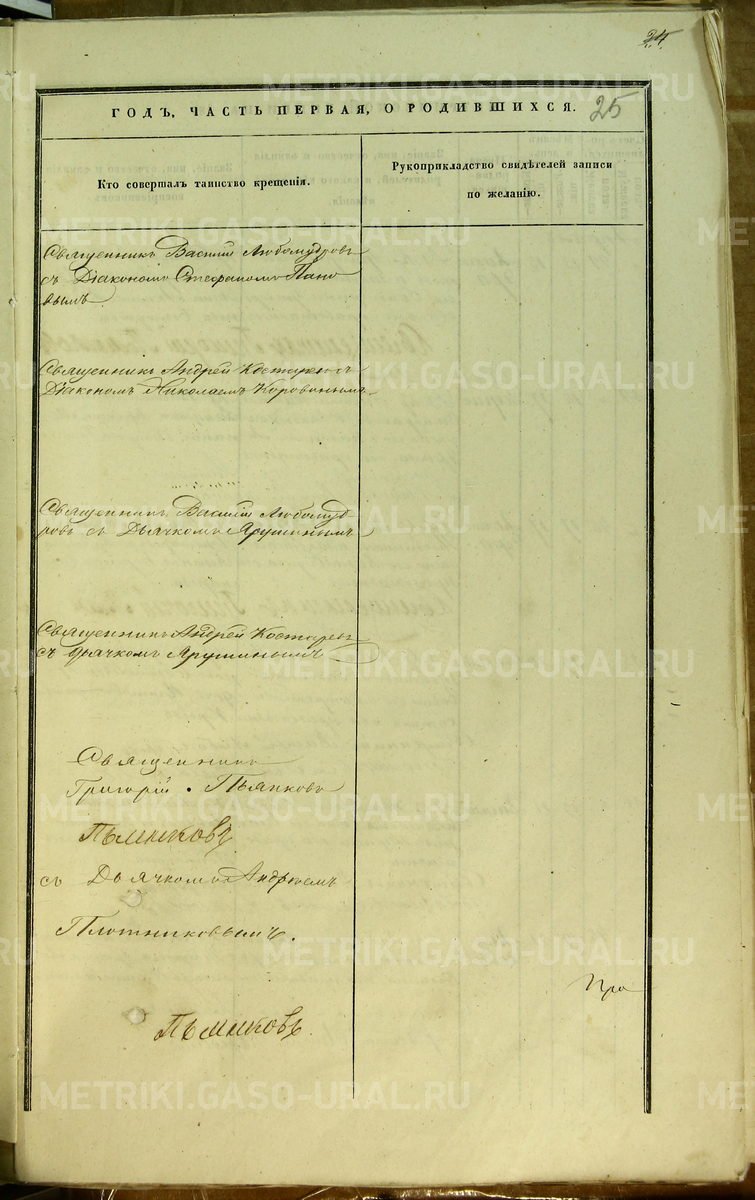 24
25
ГОДЪ, ЧАСТЬ ПЕРВАЯ, О РОДИВШИХСЯ.
Кто совершалъ таинство крещенія.
Рукоприкладство свидѣтелей записи
по желанію.
Священникъ Василій Любомудровъ
съ Діакономъ Стефаномъ Пано
вымъ
Священникъ Андрей Костаревъ съ
Діакономъ Николаемъ Коровинымъ
Священникъ Василій Любомуд
ровъ съ Дьячкомъ Ярушинымъ
Священникъ Андрей Костаревъ
съ дьячкомъ Ярушинымъ
Священникъ
Григорій
съ Дьячкомъ Андреемъ
Плотниковымъ.
Пра
METRIKI.GASO-URAL.RU